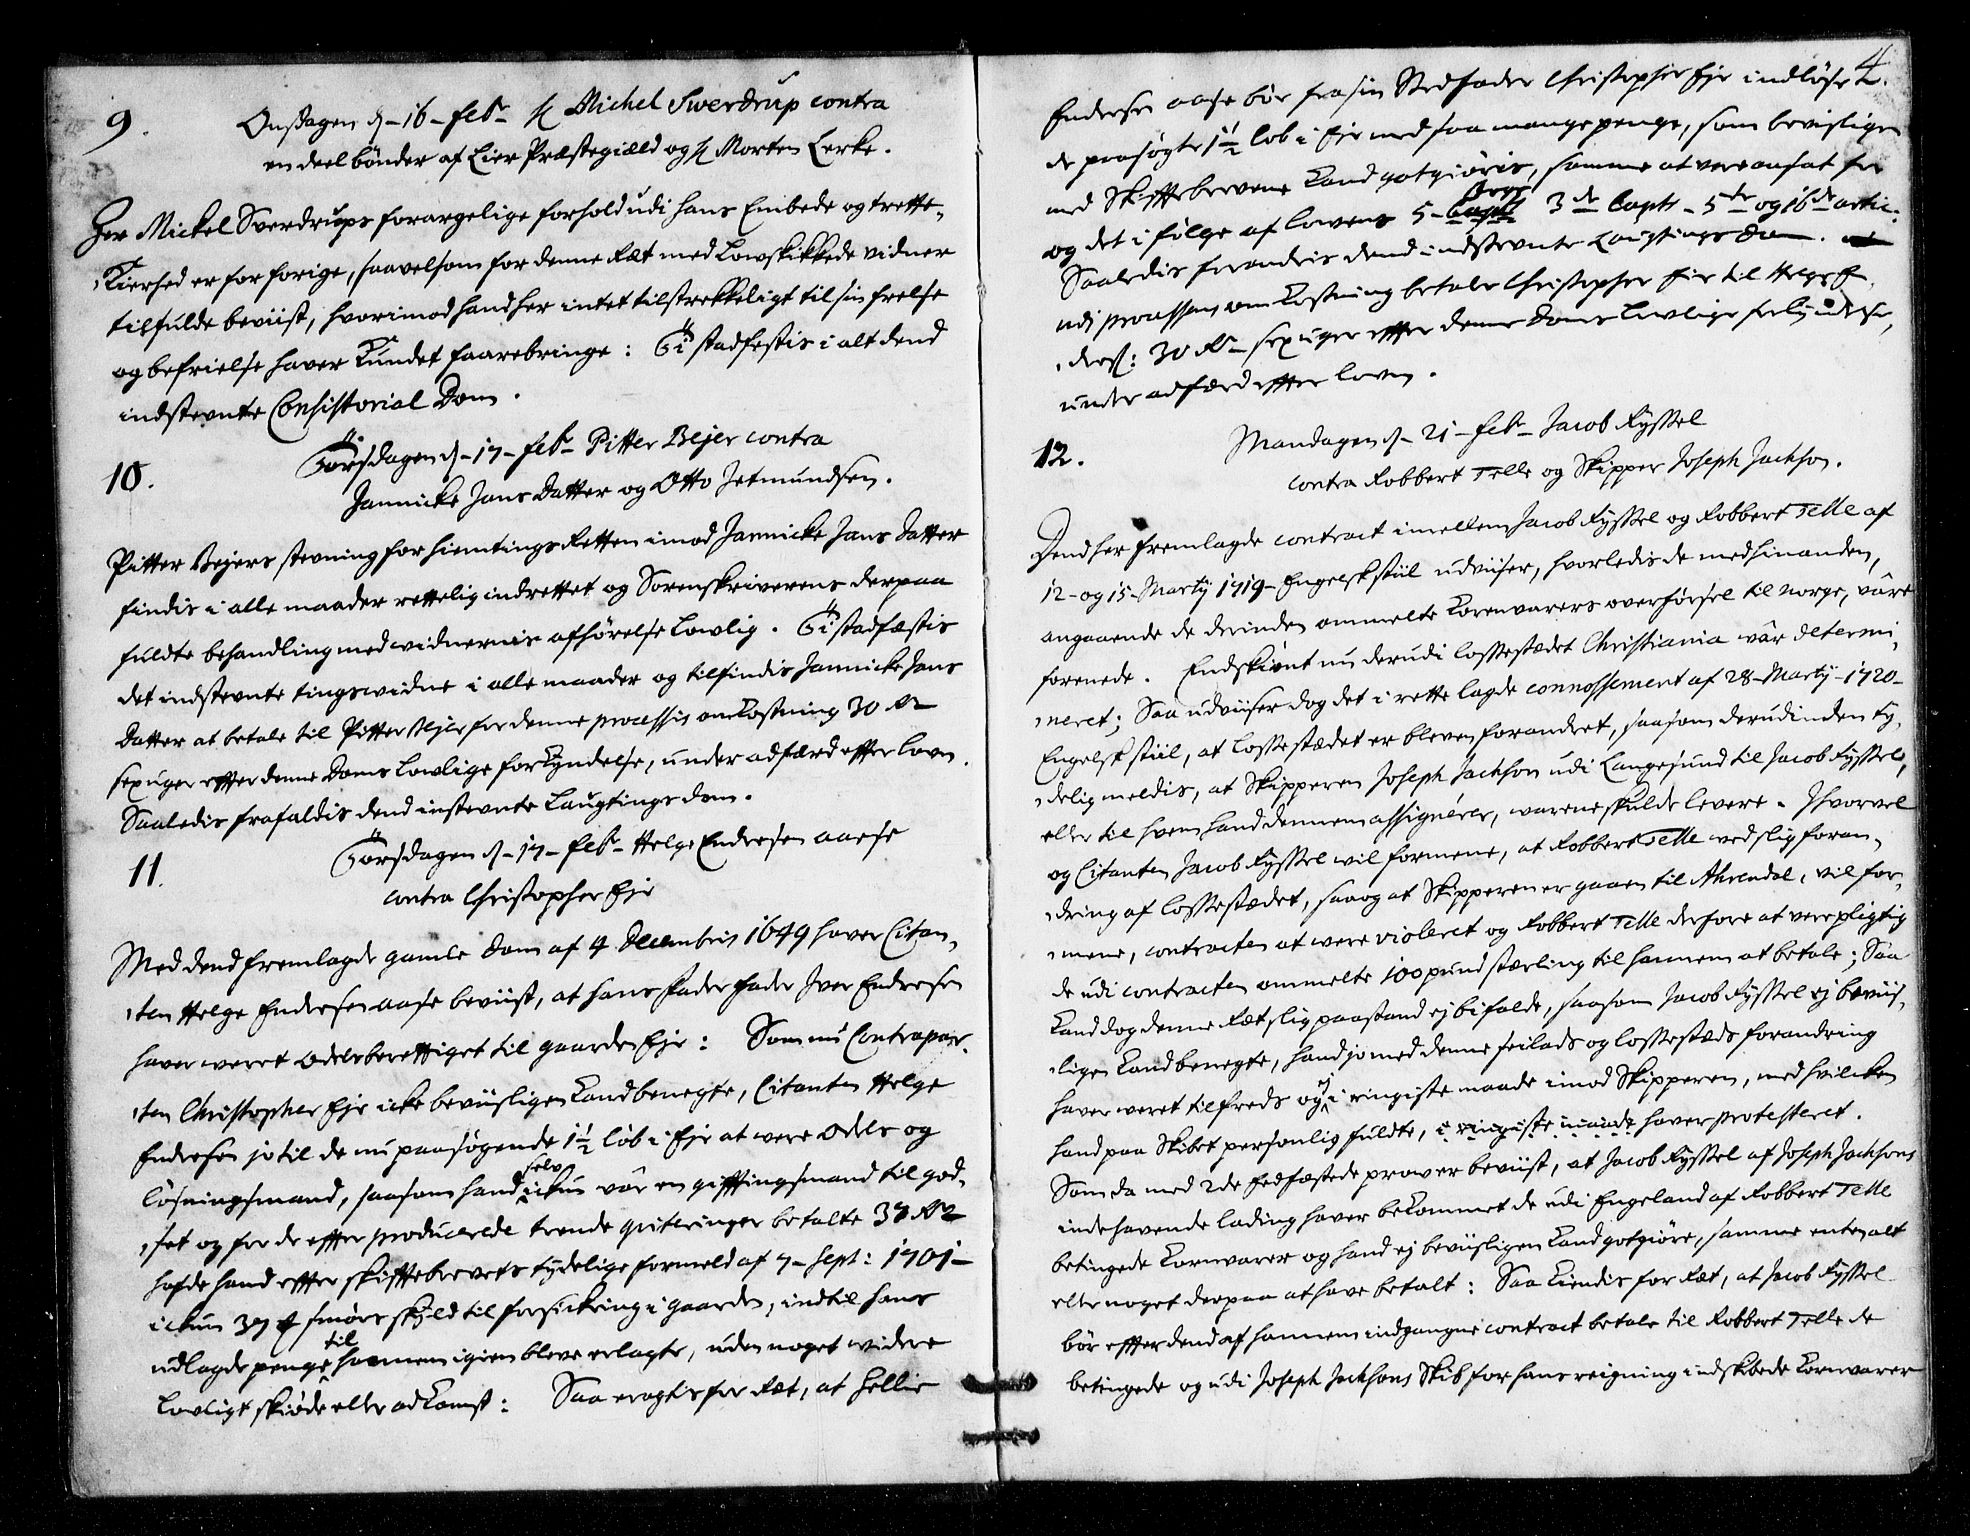 9.
Onsdagen d-16-feb. H Michel Swerdrup contra
en deel bönder af Lier Præstegiæld og H Morten Lerke.
Her Mickel Sverdrups forargelige forhold udi hans Embede og trette-
kierhed er for forige, saavelsom for denne Ræt med Lowskikkede vidner
tilfulde beviist, hvorimod hand her intet tilstrekkeligt til sin frelse
og befrielse haver kundet faarebringe: Ti stadfestis i alt dend
indstevnte Consistorial Dom.
10.
Torsdagen d-17-feb. Pitter Bejer contra
Jannicke Jans Datter og Otto Jetmundsen.
Pitter Bejers stevning for hiemtings Retten imod Jannicke Jans Datter
findis i alle maader rettelig indrettet og Sorenskriverens derpaa
fuldte behandling med widnernis afhörelse Lowlig. Ti stadfæstis
det indstevnte tingswidne i alle maader og tilfindis Jannicke Jans
Datter at betale til Pitter Bejer for denne processis omkostning 30 Rdr
sex uger effter denne Doms Lowlige forkyndelse, under adfærd effter lown.
Saaledis frafaldis dend instevnte Laugtings dom.
11.
Torsdagen d-17-feb. Helge Endresen aase
contra Christopher Eje
Med dend fremlagde gamle Dom af 4 Decembris 1649 haver Citan-
ten Helge Endresen aase beviist, at hans fader fader Iver Endresen
haver weret odelsberettiget til gaarden Eje: Som nu Contrapar-
ten Christopher Eje icke beviisligen kand benegte, Citanten Helge
Endresen jo til de nu paasögende 1½ löb i Eje at were odels og
lösningsmand, saasom hand selv ickun vår en gifftingsmand til god-
set og for de effter producerede trende qviteringer betalte 37 Rdr
hafde hand effter skifftebrevets tydelige formeld af 7-sept: 1701-
ickun 37 smörs skyld til forsickring i gaarden, indtil hans
udlagde penge til hannem igien bleve erlagte, uden noget widere
Lovligt skiöde eller adkomst: Saa eragtis for Ræt, at Hellie
4.
Endresen aase bör fra sin Stedfader Christopher Eje indlöse
de paasögte 1½ löb i Eje med saa mange penge, som bevisligen
med Skifftebrevene kand gotgiöris, samme at vere ansat for
og det i fölge af lowens 5- Bogs 3de Capit- 5te og 16de artic:
Saaledis forandris dend indstevnte Laugtings dom.
udi processens omkostning betaler Christopher Eje til Helge E
ders: 30 Rdr sex uger effter denne Doms Lovlige forkyndelse,
under adfærd effter loven.
12.
Mandagen d- 21-feb. Jacob Ryssel
contra Robbert Telle og Skipper Joseph Jackson.
Dend her fremlagde contract imellem Jacob Ryssel og Robbert Telle af
12- og 15-Martij 1719- Engelsk stiil udviiser, hvorledis de med hinanden,
angaaende de derinden ommelte Kornvarers overförsel til Norge, våre
forenede. Endskiönt nu derudi lossestædet Christiania vår determi-
neret; Saa udviiser dog det i rette lagde connossement af 28-Martij-1720-
Engelsk stiil, at lossestædet er bleven forandret, saasom derudinden ty-
delig meldis, at Skipperen Joseph Jackson udi Langesund til Jacob Ryssel,
eller til hvem hand dennem assignerer, warene skulde levere. Ihvorvel
og Citanten Jacob Ryssel wil formene, at Robbert Telle ved slig foran-
dring af lossestædet, saa og at Skipperen er gaaen til Ahrendal, vil for-
mene, contracten at were violeret og Robbert Telle derfore at vere pligtig
de udi contracten ommelte 100 pund stærling til hannem at betale; Saa
kand dog denne Ræt slig paastand ej bifalde, saasom Jacob Ryssel ej beviis-
ligen kand benegte, hand jo med denne seilads og lossestæds forandring
haver weret tilfreds og ej i ringiste maade imod Skipperen, med hvilcken
hand paa Skibet personlig fuldte, i ringiste maade haver protesteret.
Som da med 2de Eedfæstede prower beviist, at Jacob Ryssel af Joseph Jacksons
indehavende lading haver bekommet de udi Engeland af Robbert Telle
betingede Kornvarer og hand ej beviisligen kand gotgiöre, samme enten alt
eller noget derpaa at have betalt: Saa kiendis for Ræt, at Jacob Ryssel
bör effter dend af hannem indgangne contract betale til Robbert Telle de
betingede og udi Joseph Jacksons Skib for hans reigning indskibede Kornvarer